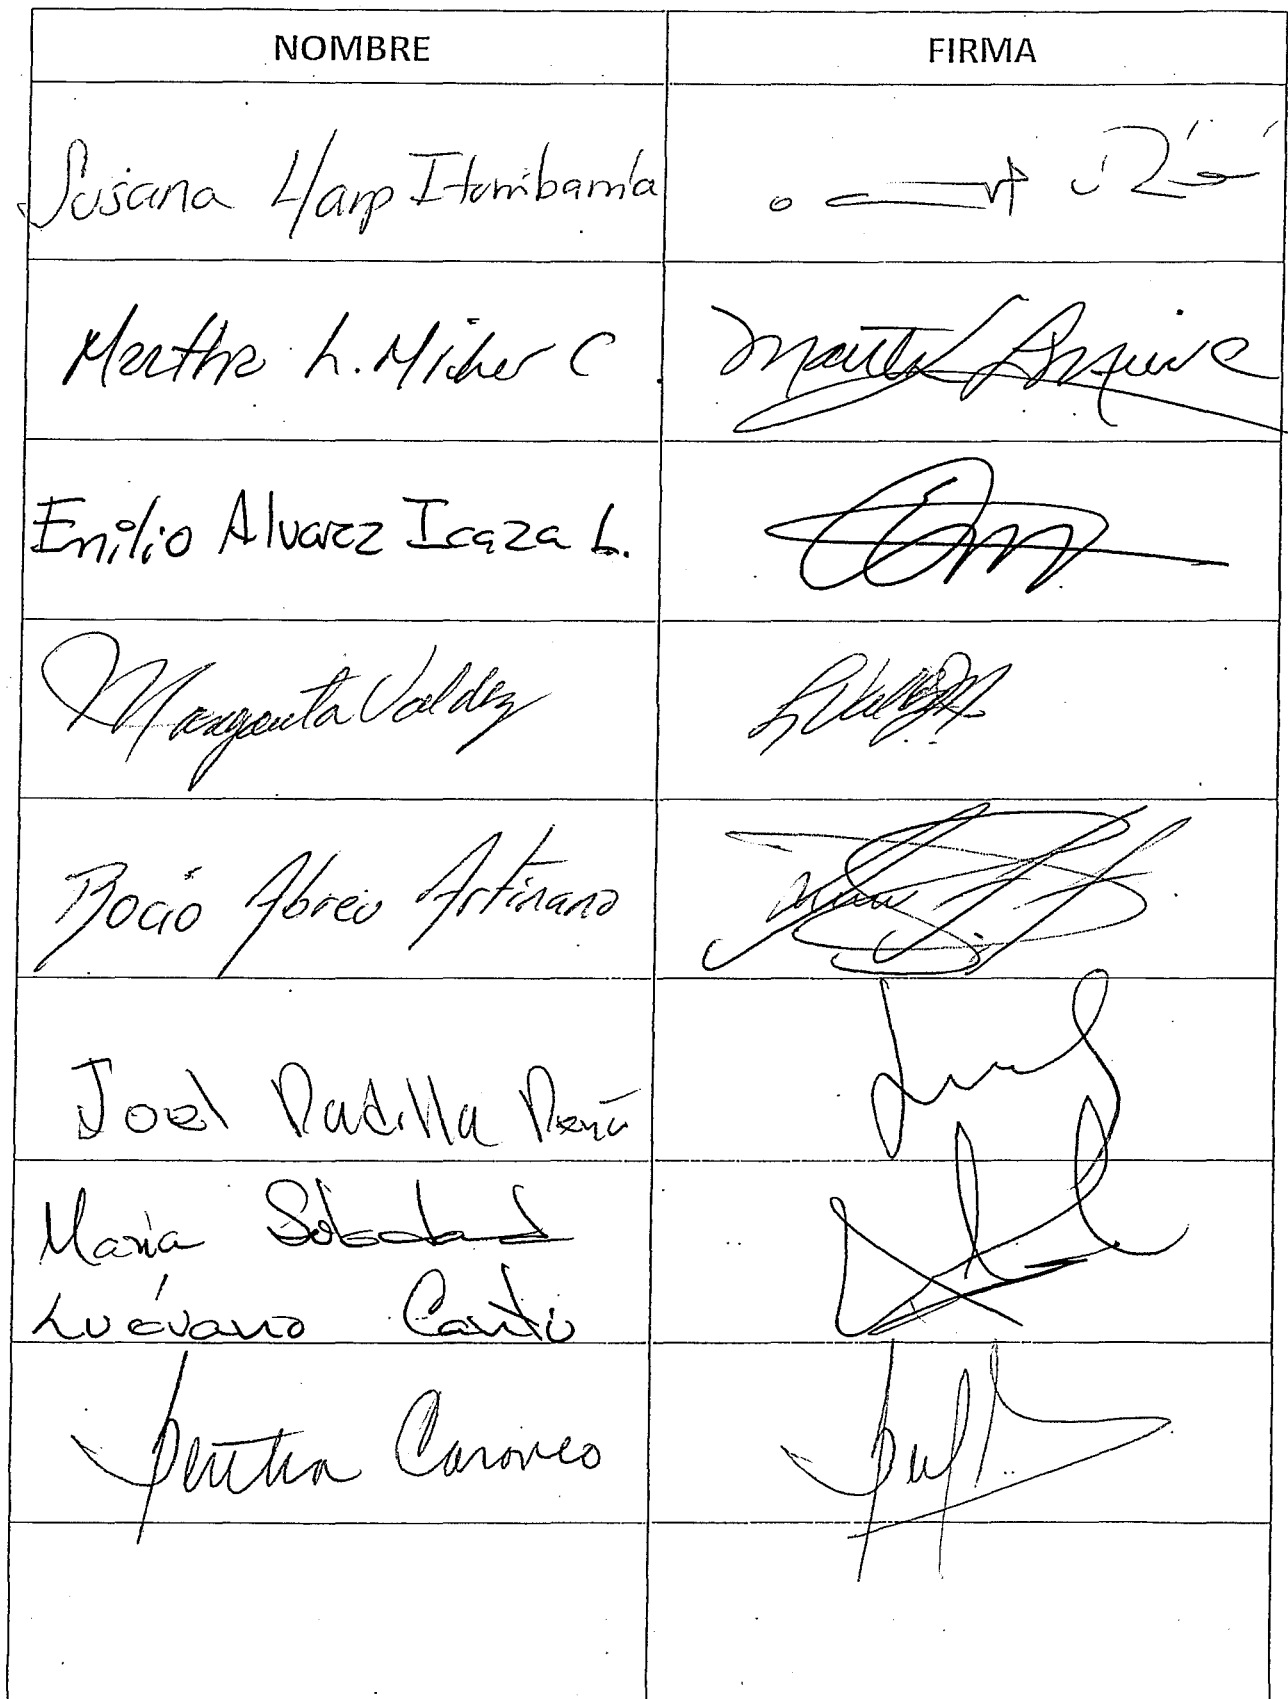 NOMBRE FIRMA
Susana Harp Iturribarría
Martha L. Micher C
Emilio Alvarez Icaza L.
Margarita Valdez
Rocío Abreu Artiñano
Joel Padilla Peña
María Soledad
Luévano Cantú
Bertha Caraveo